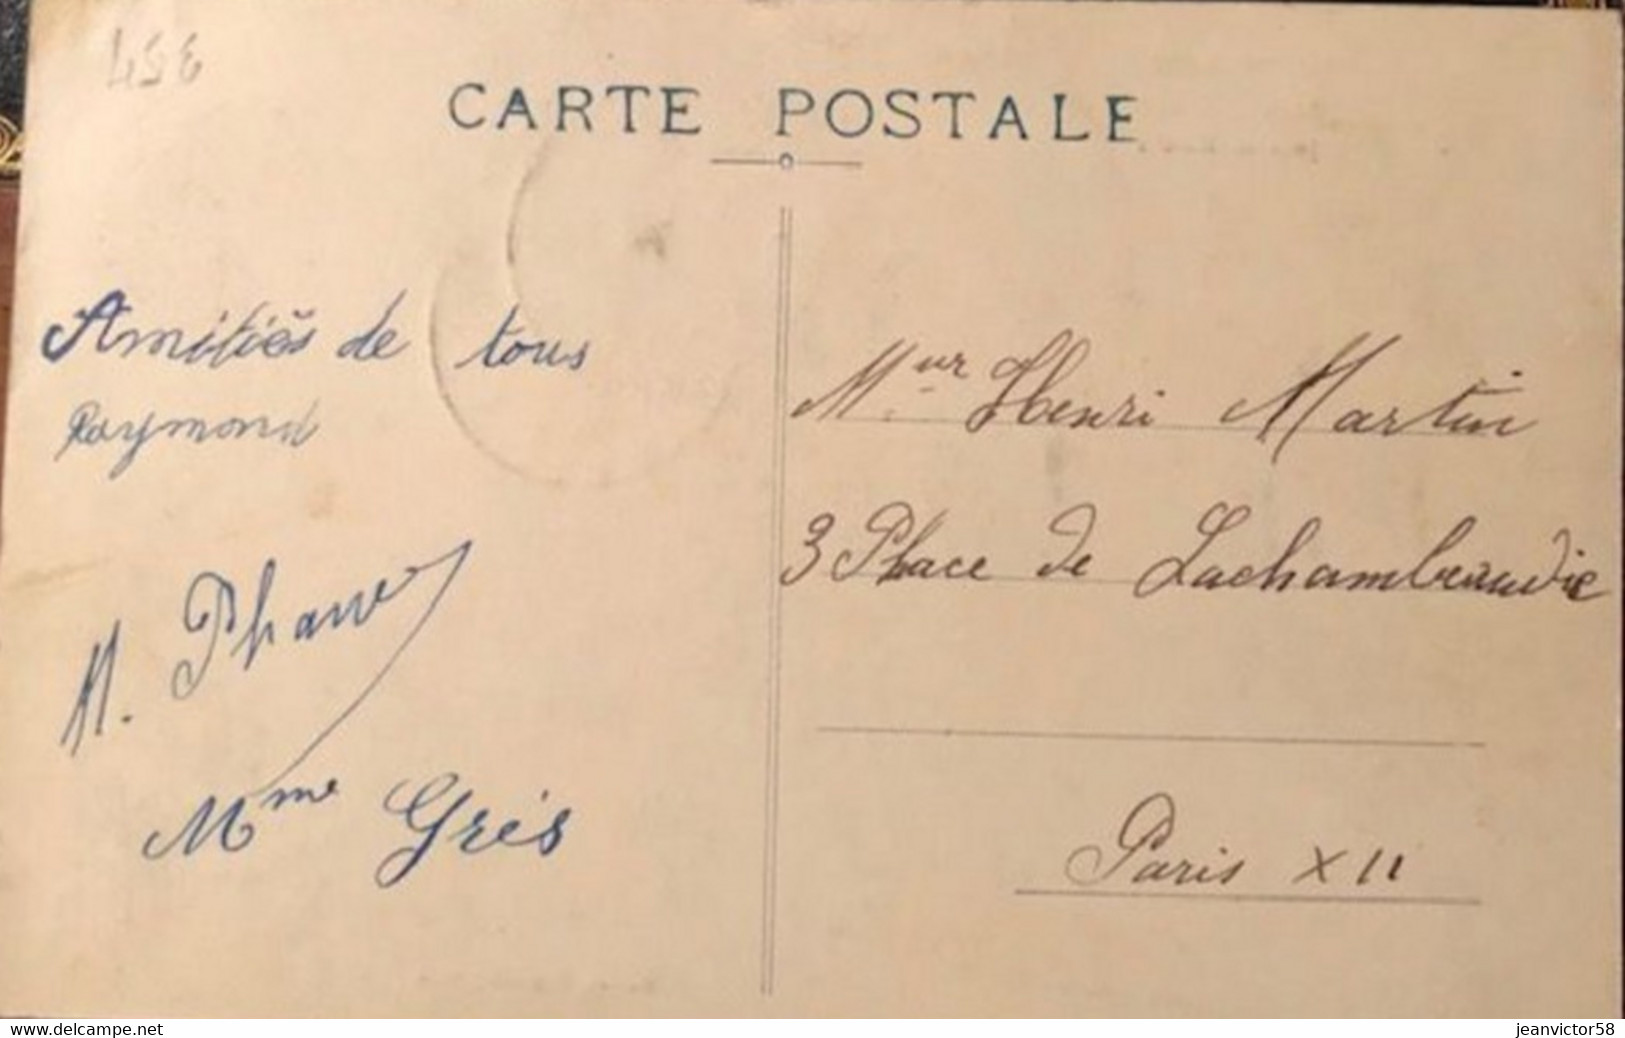 CARTE POSTALE
Amitiés de tous
Raymond
Mme Grés
Mr Henri Martin
3 Place de Lachambeaudie
Paris XII
www.delcampe.net
jeanvictor58